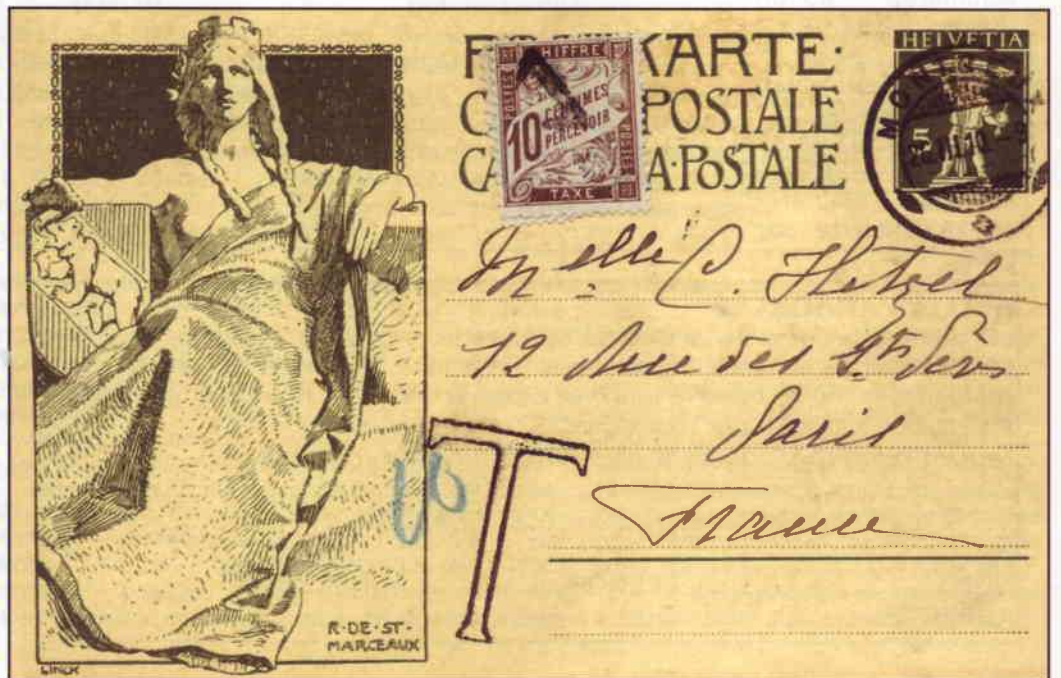 KARTE·
POSTALE
A·POSTALE
HELVETIA
5
CHIFFRE
POSTES
10 CENTIMES
PERCEVOIR
POSTES
TAXE
Melle C. Hetzel
12 Rue des Sts Pères
Paris
France
T
10
R·DE·ST·
MARCEAUX
LINCK